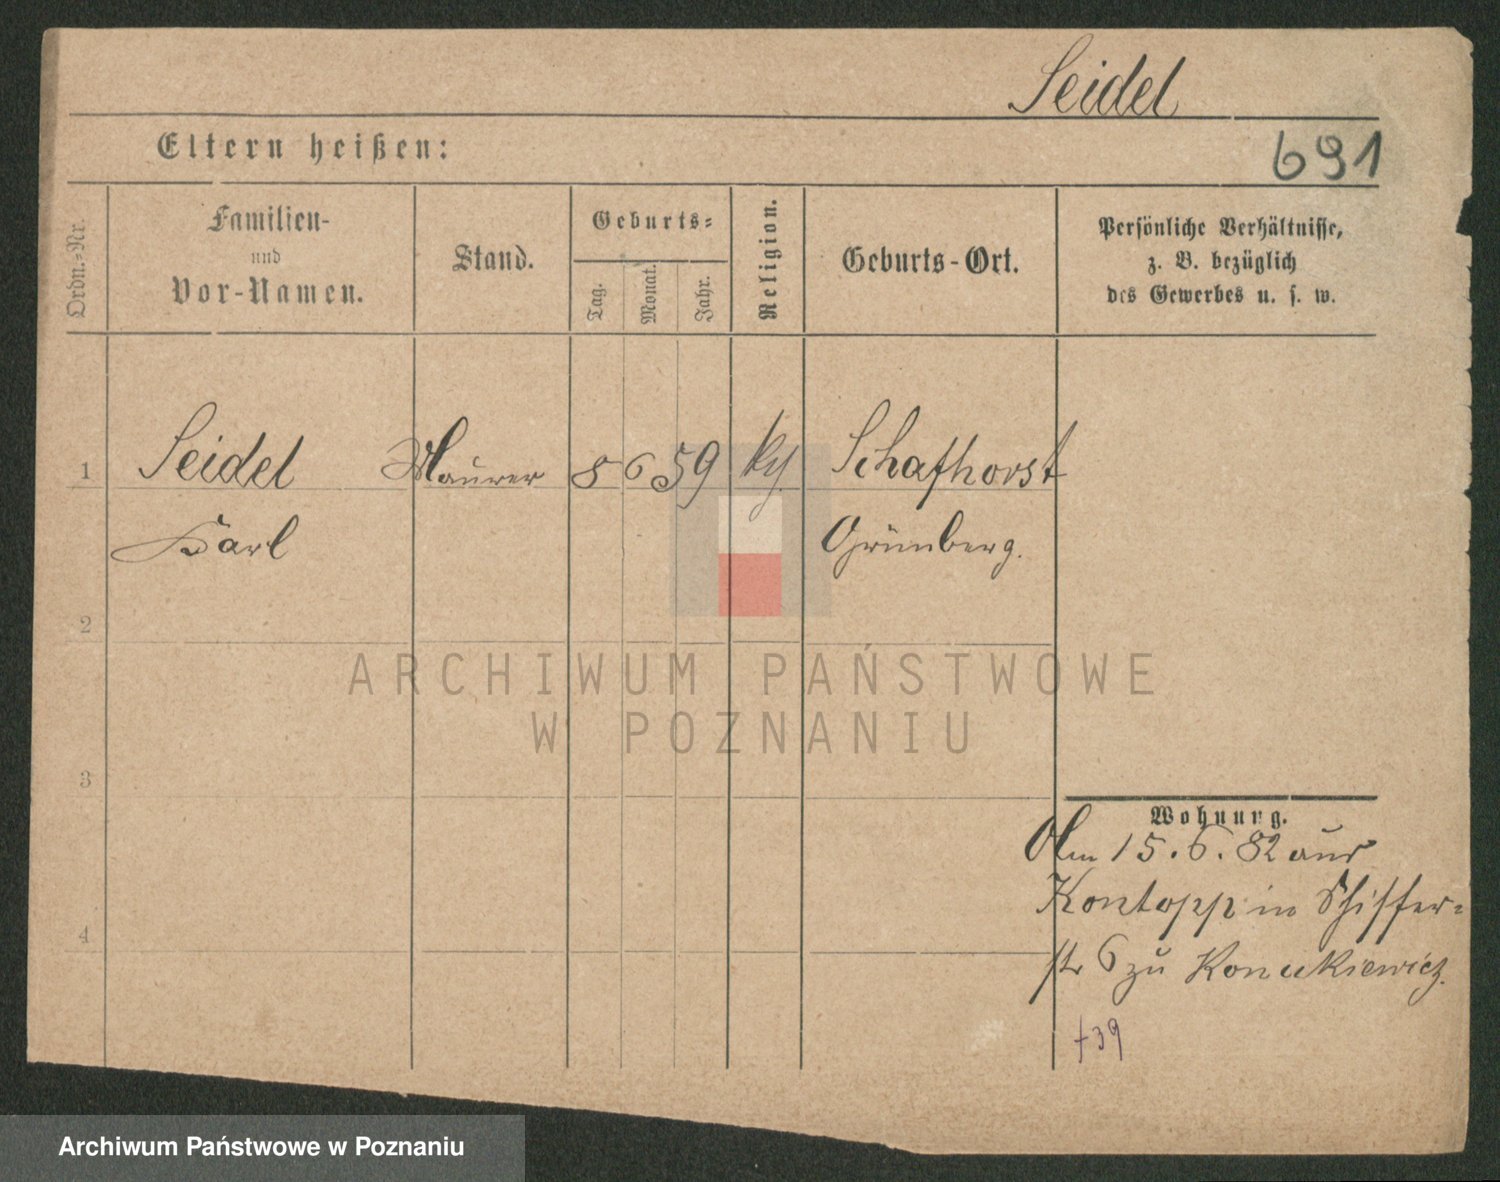 Seidel
Eltern heißen:
691
Ordn.-Nr.
Familien-
und
Vor-Namen.
Stand.
Geburts-
Tag.
Monat.
Jahr.
Religion.
Geburts-Ort.
Persönliche Verhältnisse,
z. B. bezüglich
des Gewerbes u. s. w.
1 Seidel Maurer 8 6 59 Schafhorst
Karl Grünberg.
2
ARCHIWUM PAŃSTWOWE
W POZNANIU
3
Wohnung.
Am 15. 6. 82 aus
Kontopp in Schiffer-
4
str 6 zu
+39
Archiwum Państwowe w Poznaniu